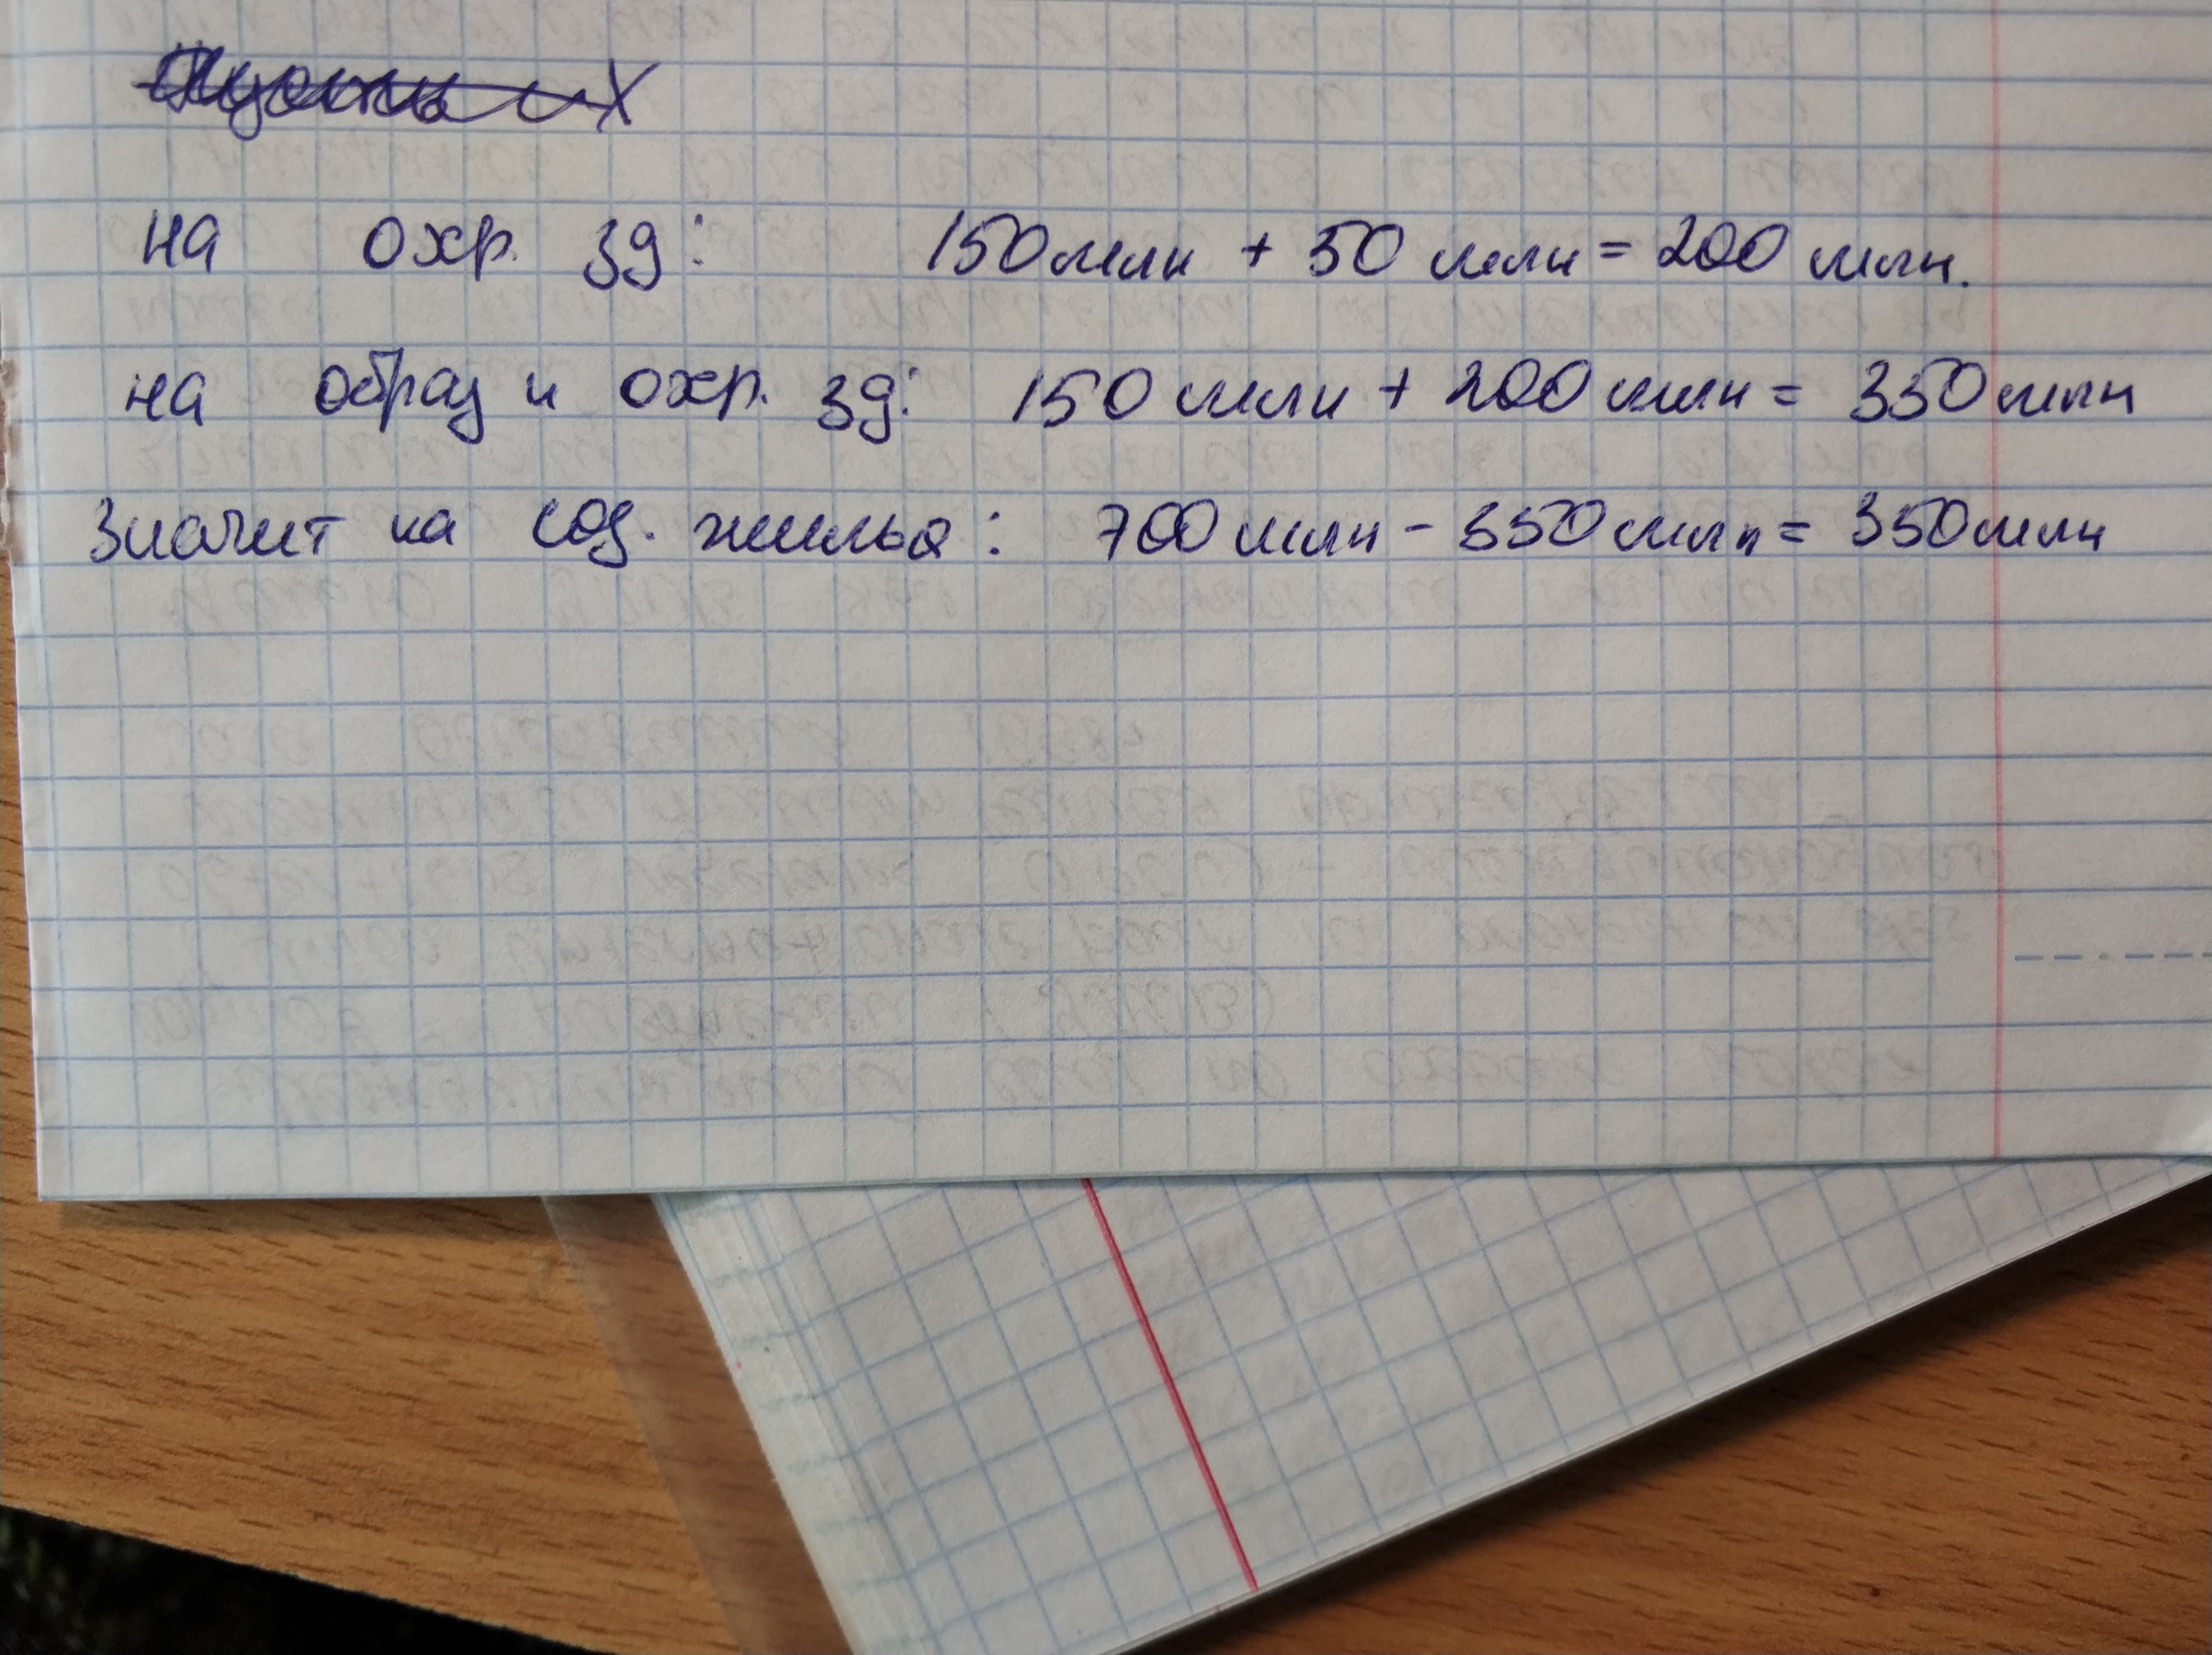 на охр. зд: 150 млн + 50 млн = 200 млн.
на образ и охр. зд: 150 млн + 200 млн = 350 млн
Значит на сод. жилья: 700 млн - 350 млн = 350 млн